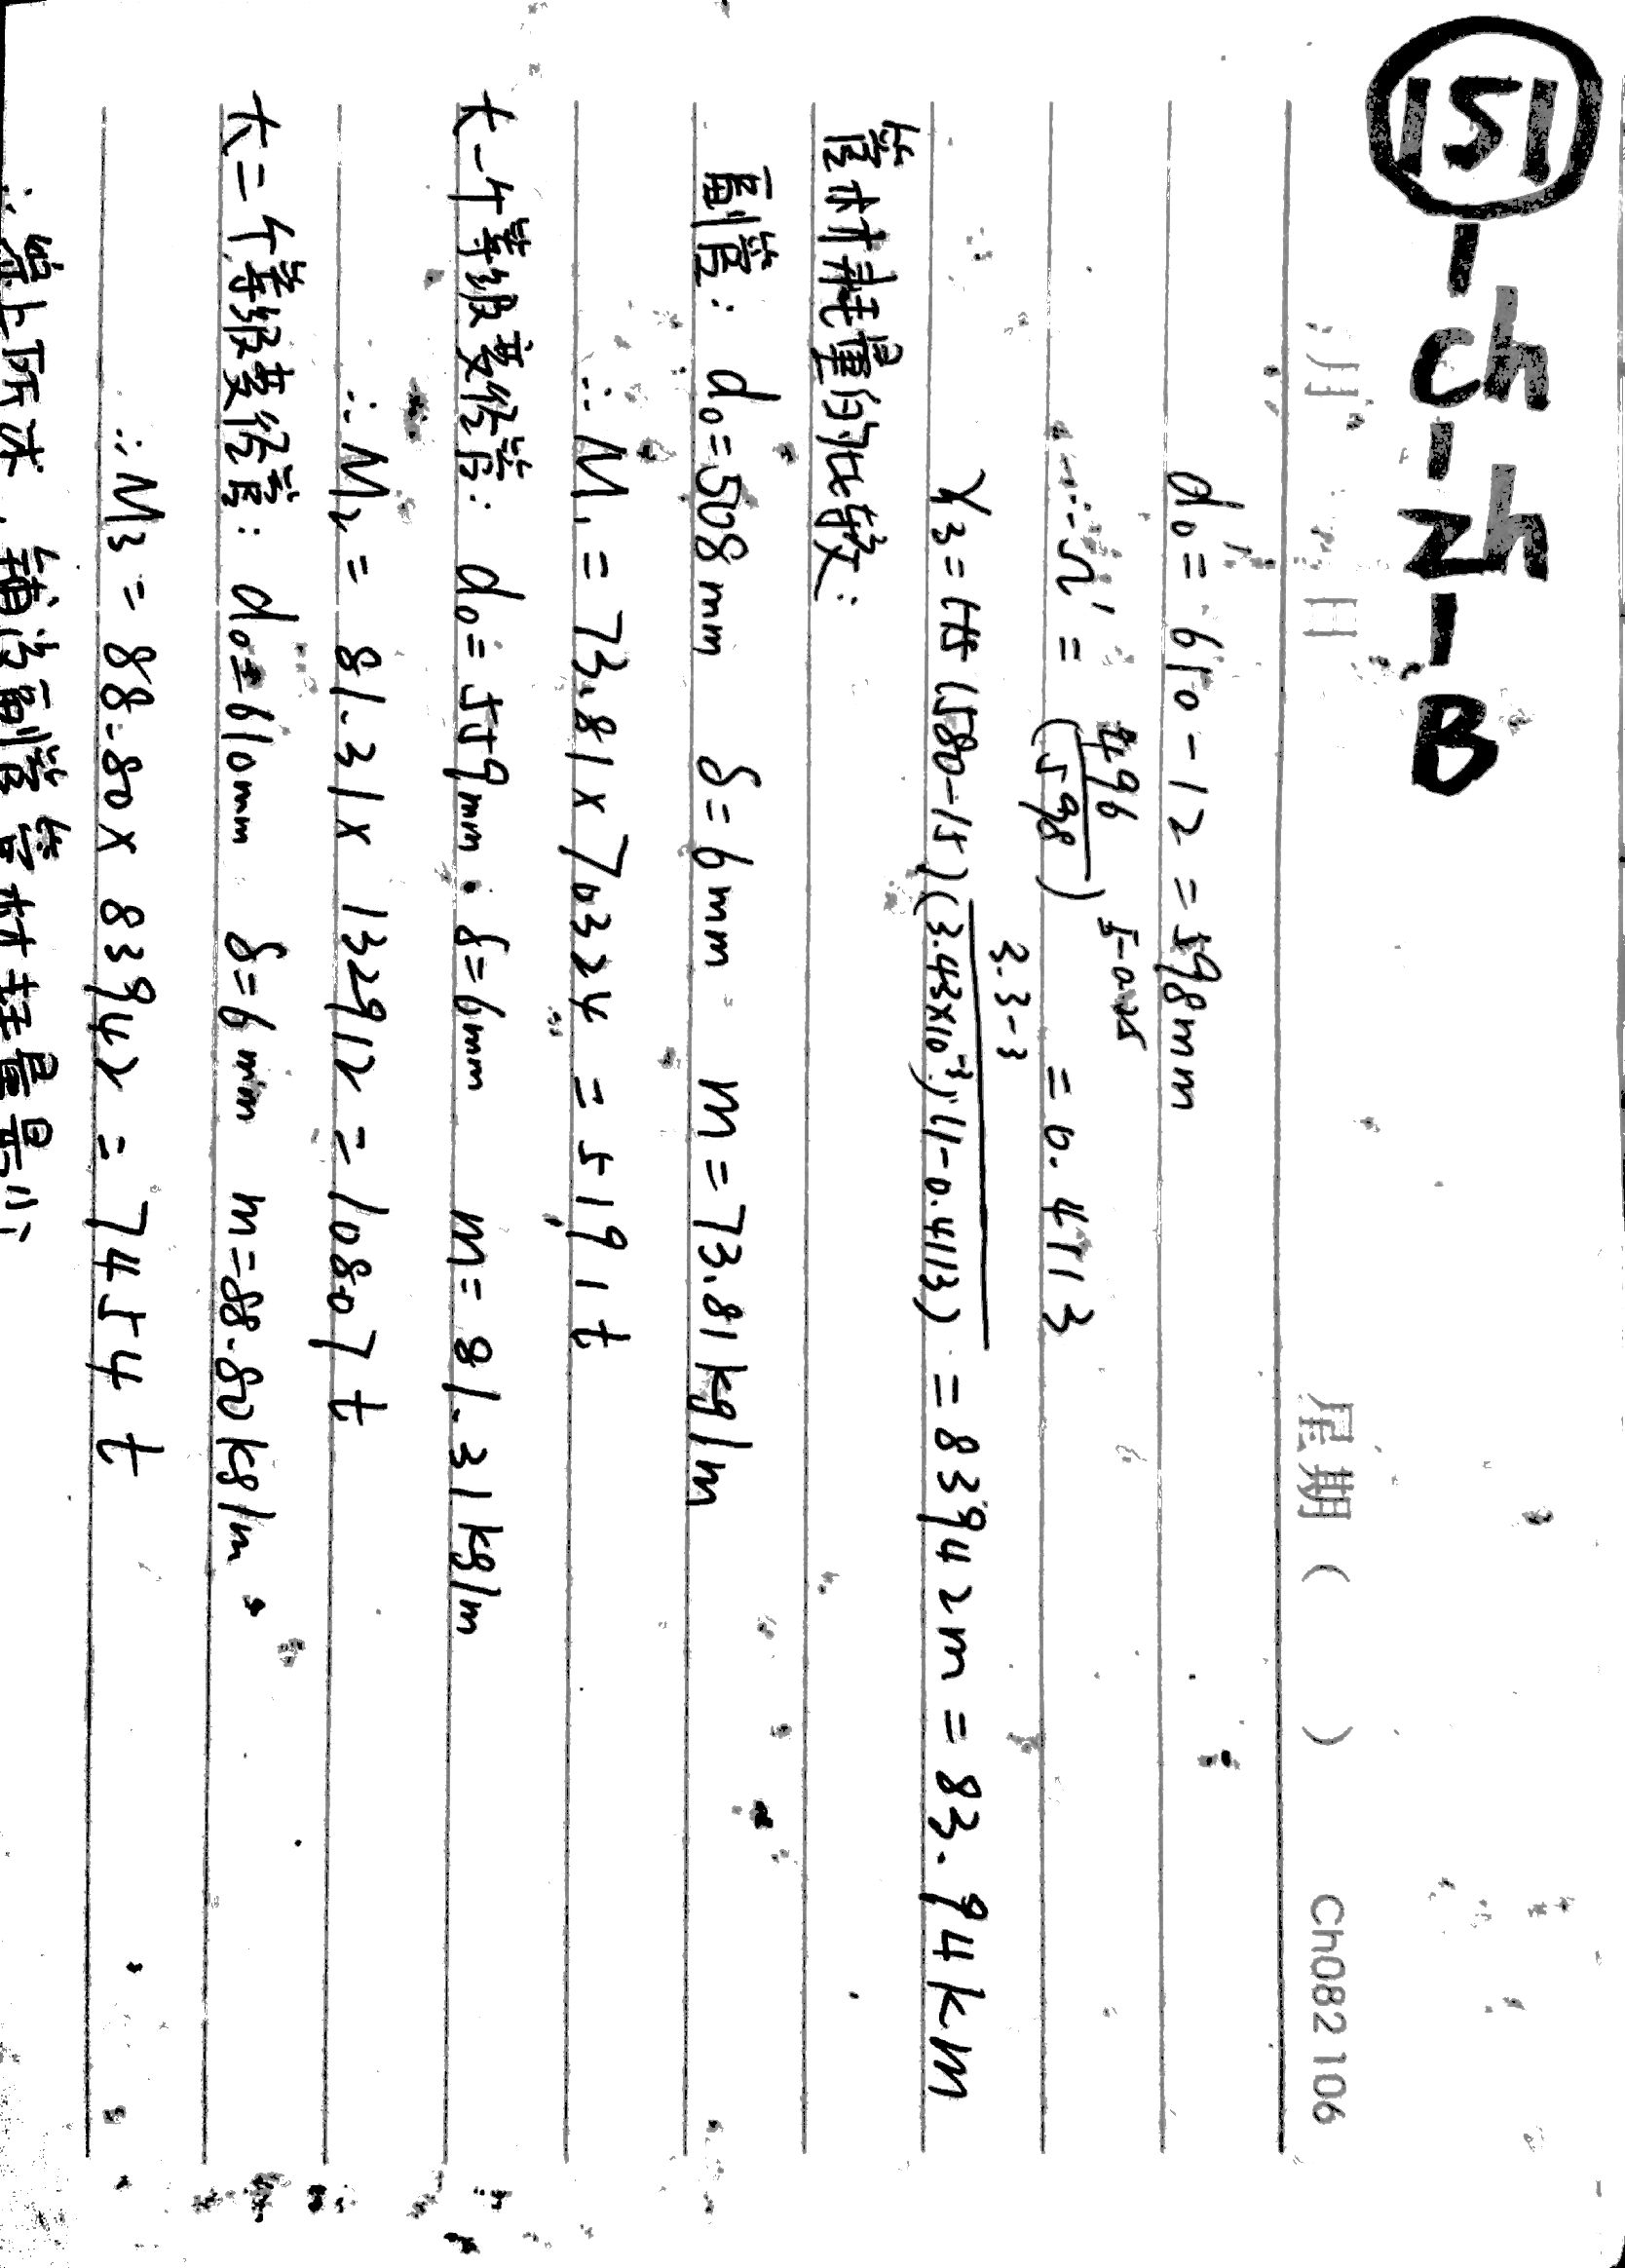 151-ch-zh-B
月 日 星期( ) Ch082 106
d₀' = 610-12 = 598mm
∴Ω' = (496/598)^(5-0.25) = 0.4113
χ₃ = (1580-15) 3.3-3/(3.43×10⁻³)(1-0.4113) = 83942m = 83.94km
管材耗量的比较:
副管: d₀=508mm δ=6mm m=73.81kg/m
∴M₁ = 73.81×70324 = 5191t
大一个等级变径管: d₀=559mm. δ=6mm m=81.31kg/m
∴M₂ = 81.31×132912 = 10807t
大二个等级变径管: d₀=610mm δ=6mm m=88.80kg/m
∴M₃ = 88.80×83942 = 7454t
∴综上所述,铺设副管管材耗量最小